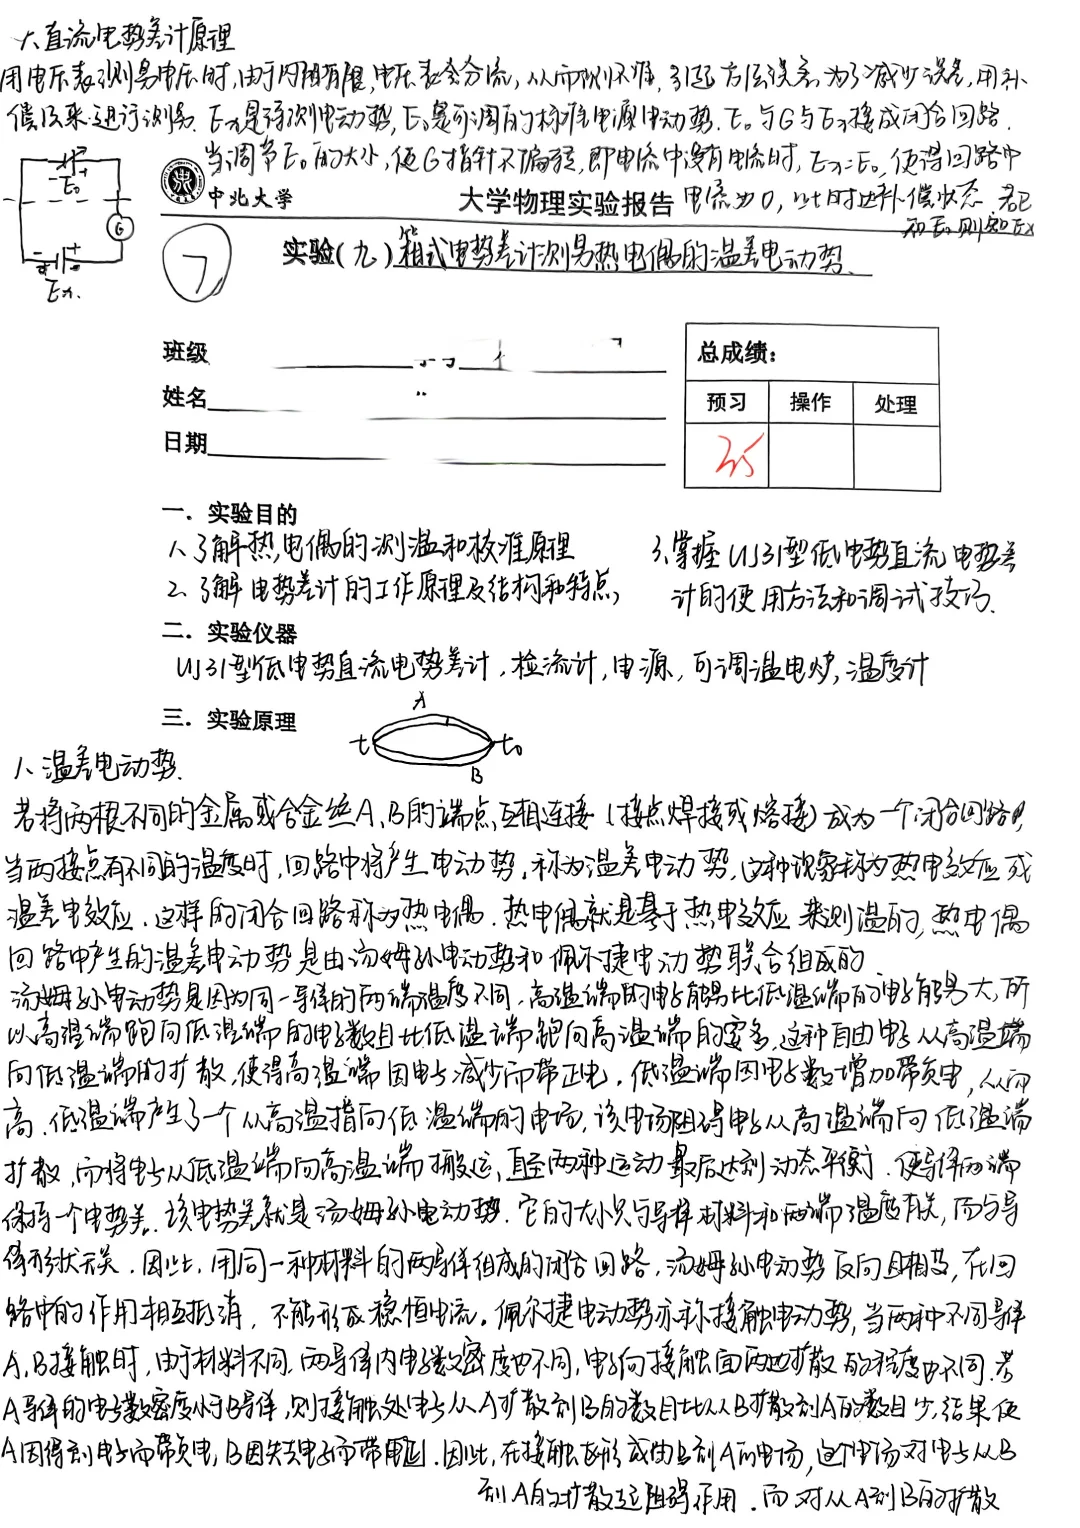 大直流电势差计原理
用电压表测量电压时,由于内阻有限,电压表会分流,从而测不准,引起方法误差,为了减少误差,用补
偿法来进行测量.Ex是待测电动势,E0是可调的标准电源电动势.E0与G与Ex接成闭合回路.
当调节E0的大小,使G指针不偏转,即电流中没有电流时,Ex=E0,使得回路中
电流为0,此时达补偿状态.若已
知E0则知Ex
E0
G
Ex.
中北大学
大学物理实验报告
7
实验(九)箱式电势差计测量热电偶的温差电动势.
班级
姓名
日期
总成绩:
预习 操作 处理
25
一.实验目的
1、了解热电偶的测温和校准原理
2、了解电势差计的工作原理及结构和特点,
3.掌握UJ31型低电势直流电势差
计的使用方法和调试技巧.
二.实验仪器
UJ31型低电势直流电势差计,检流计,电源,可调温电炉,温度计
三.实验原理
A
t
t0
B
1、温差电动势.
若将两根不同的金属或合金丝A、B的端点互相连接(接点焊接或熔接)成为一个闭合回路,
当两接点有不同的温度时,回路中将产生电动势,称为温差电动势,这种现象称为热电效应或
温差电效应.这样的闭合回路称为热电偶.热电偶就是基于热电效应来测温的,热电偶
回路中产生的温差电动势是由汤姆孙电动势和佩尔捷电动势联合组成的
汤姆孙电动势是因为同一导体的两端温度不同,高温端的电子能量比低温端的电子能量大,所
以高温端跑向低温端的电子数目比低温端跑向高温端的要多,这种自由电子从高温端
向低温端的扩散,使得高温端因电子减少而带正电,低温端因电子数增加带负电,从而
高、低温端产生了一个从高温指向低温端的电场,该电场阻碍电子从高温端向低温端
扩散,而将电子从低温端向高温端搬运,直至两种运动最后达到动态平衡.使导体两端
保持一个电势差.该电势差就是汤姆孙电动势.它的大小只与导体材料和两端温度有关,而与导
体形状无关.因此,用同一种材料的两导体组成的闭合回路,汤姆孙电动势反向且相等,在回
路中的作用相互抵消,不能形成稳恒电流。佩尔捷电动势亦称接触电动势,当两种不同导体
A、B接触时,由于材料不同,两导体内电子数密度也不同,电子向接触面两边扩散的程度也不同.若
A导体的电子数密度小于B导体,则接触处电子从A扩散到B的数目比从B扩散到A的数目少,结果使
A因得到电子而带负电,B因失去电子而带正电.因此,在接触处形成由B到A的电场,这个电场对电子从B
到A的扩散起阻碍作用.而对从A到B的扩散